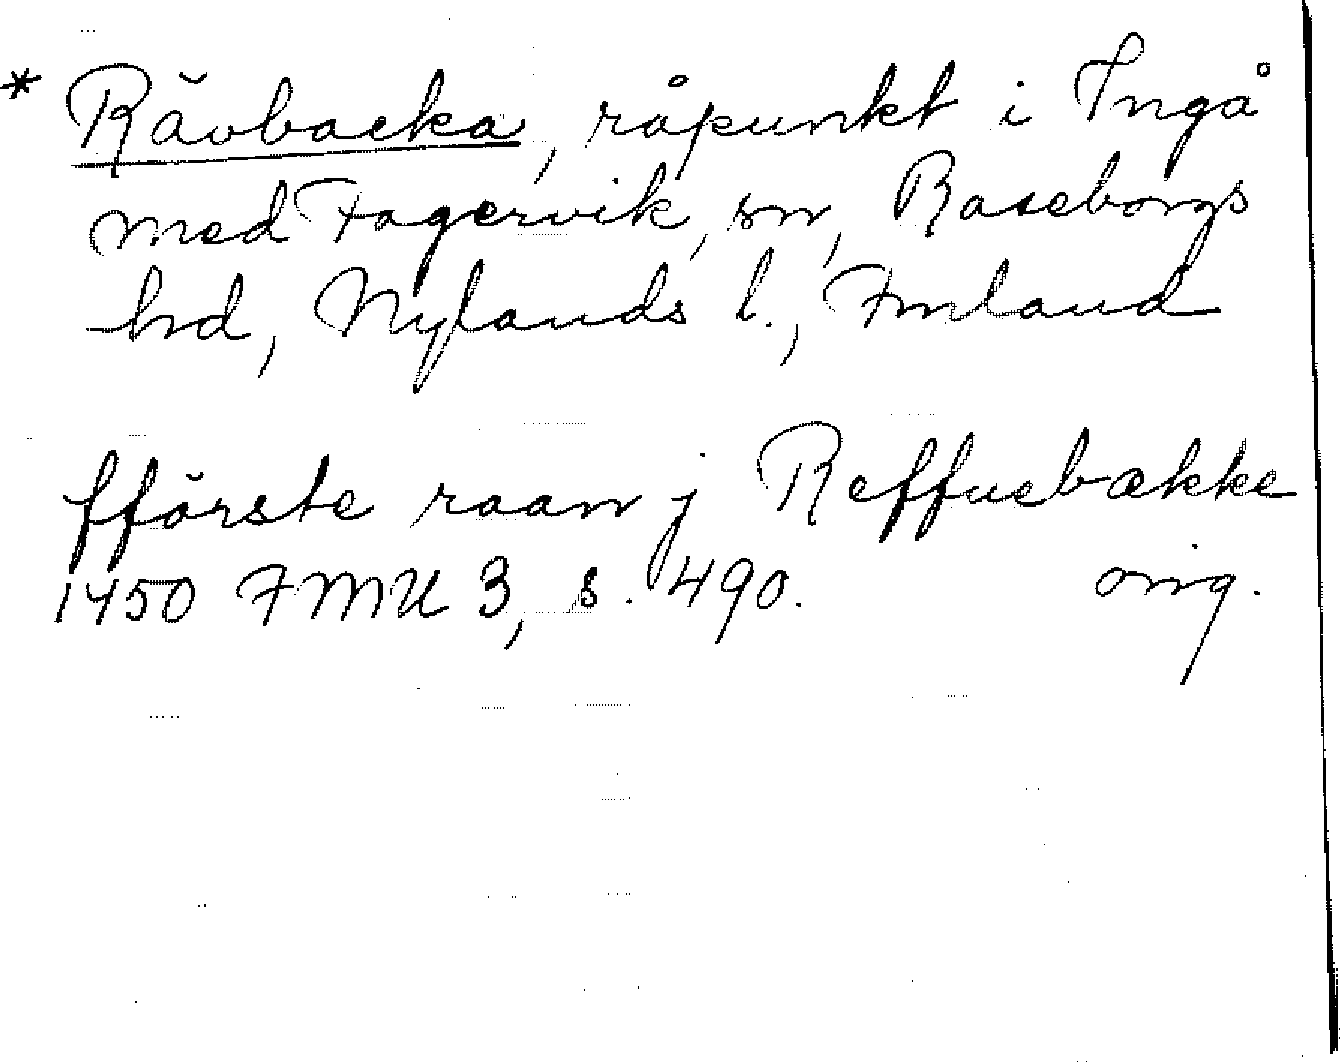 * Rävbacka, råpunkt i Ingå
med Fagervik, sn, Raseborgs
hd, Nylands l., Finland
fförste raan j Reffuebække
1450 FMU 3, s. 490. orig.